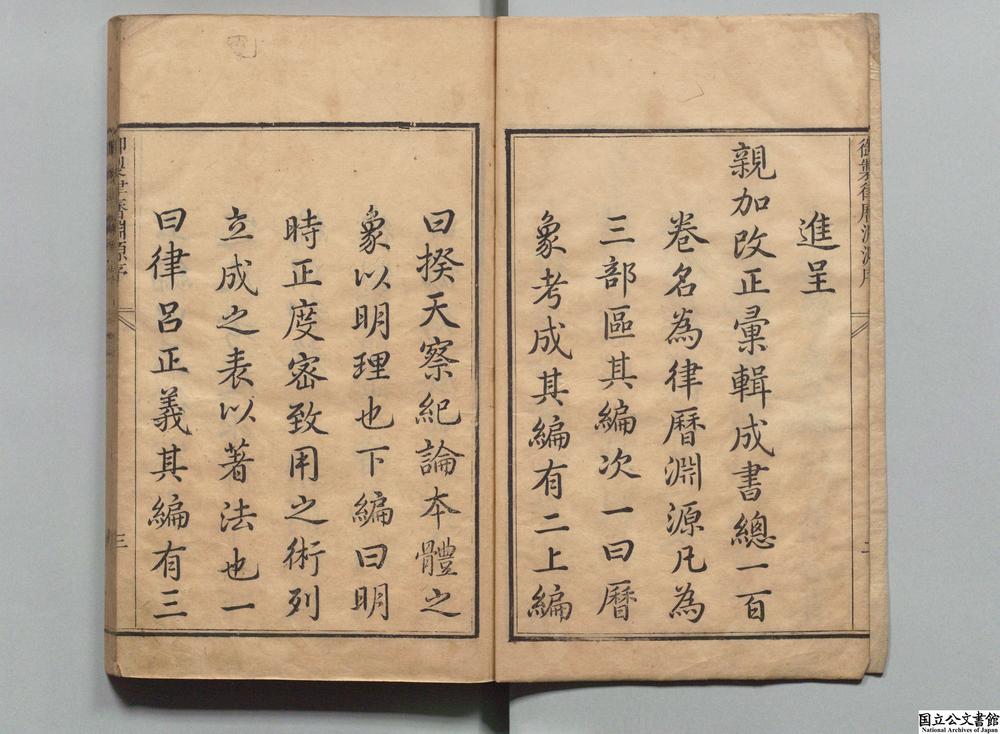 御製律曆淵源序
二
進呈
親加改正彙輯成書總一百
卷名為律曆淵源凡為
三部區其編次一曰曆
象考成其編有二上編
曰揆天察紀論本體之
象以明理也下編曰明
時正度密致用之術列
立成之表以著法也一
曰律呂正義其編有三
御製律曆淵源序
三
国立公文書館
National Archives of Japan